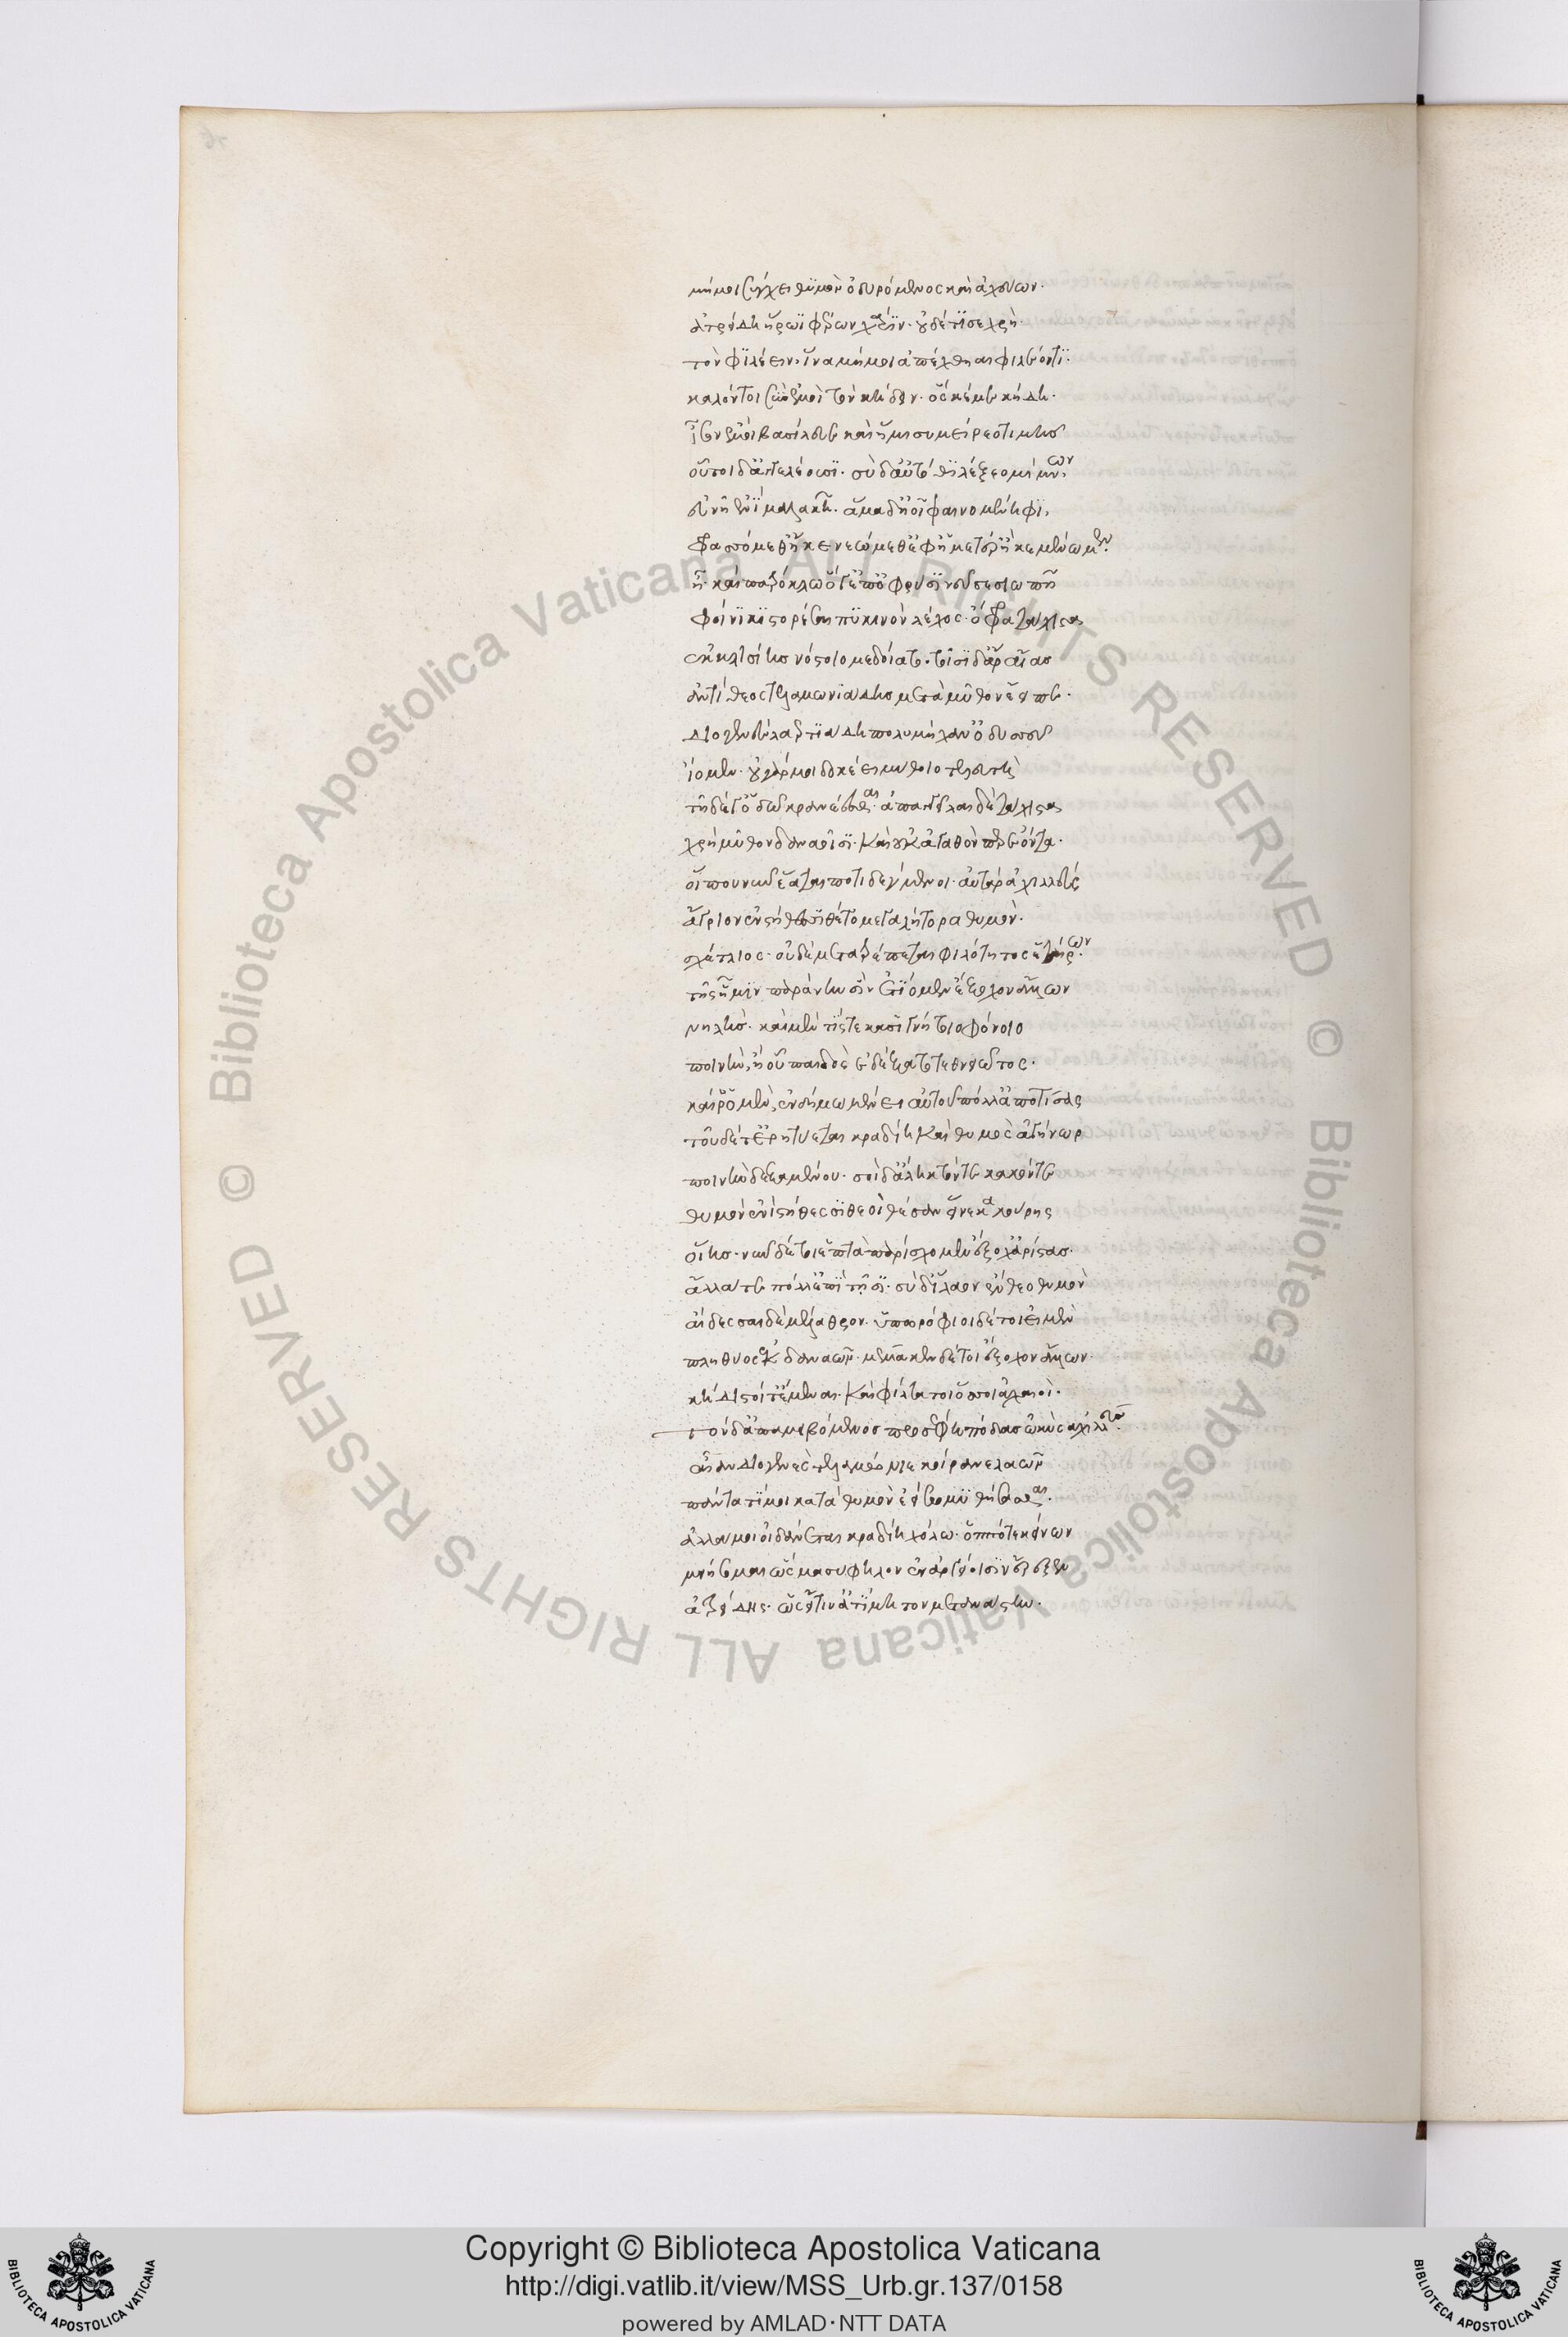 μή μοι σύγχει θυμὸν ὀδυρόμενος καὶ ἀχεύων·
ἀτρείδῃ ἥρωϊ φέρων χάριν· οὐδέ τί σε χρὴ
τὸν φιλέειν· ἵνα μή μοι ἀπέχθηαι φιλέοντι·
καλόν τοι σὺν ἐμοὶ τὸν κήδειν· ὅς κέ με κήδῃ·
ἶσον ἐμοὶ βασίλευε καὶ ἥμισυ μείρεο τιμῆς
οὗτοι δ' ἀγγελέουσι· σὺ δ' αὐτόθι λέξεο μίμνων
εὐνῇ ἔνι μαλακῇ· ἅμα δ' ἠοῖ φαινομένηφι,
φρασσόμεθ' ἤ κε νεώμεθ' ἐφ' ἡμέτερ' ἤ κε μένωμεν·
ἦ· καὶ πατρόκλω ὅγ' ἐπ' ὀφρύσι νεῦσε σιωπῇ
φοίνικι στορέσαι πυκινὸν λέχος· ὄφρα τάχιστα
ἐκ κλισίης νόστοιο μεδοίατο· τοῖσι δ' ἄρ' αἴας
ἀντίθεος τελαμωνιάδης μετὰ μῦθον ἔειπε·
διογενὲς λαερτιάδη πολυμήχαν' ὀδυσσεῦ
ἴομεν· οὐ γάρ μοι δοκέει μύθοιο τελευτὴ
τῇδέ γ' ὁδῷ κρανέεσθαι· ἀπαγγεῖλαι δὲ τάχιστα
χρὴ μῦθον δαναοῖσι· καὶ οὐκ ἀγαθόν περ ἐόντα·
οἵ που νῦν ἕαται ποτιδέγμενοι· αὐτὰρ ἀχιλλεὺς
ἄγριον ἐν στήθεσσι θέτο μεγαλήτορα θυμὸν·
σχέτλιος· οὐδὲ μετατρέπεται φιλότητος ἑταίρων·
τῆς ᾗ μιν παρὰ νηυσὶν ἐτίομεν ἔξοχον ἄλλων
νηλής· καὶ μέν τίς τε κασιγνήτοιο φόνοιο
ποινὴν, ἢ οὗ παιδὸς ἐδέξατο τεθνειῶτος·
καί ῥ' ὁ μὲν, ἐν δήμω μένει αὐτοῦ πόλλ' ἀποτίσας
τοῦ δέ τ' ἐρητύεται κραδίη καὶ θυμὸς ἀγήνωρ
ποινὴν δεξαμένου· σοὶ δ' ἄληκτόν τε κακόν τε
θυμὸν ἐνὶ στήθεσσι θεοὶ θέσαν εἵνεκα κούρης
οἴης· νῦν δέ τοι ἑπτὰ παρίσχομεν ἔξοχ' ἀρίστας·
ἄλλα τε πόλλ' ἐπὶ τῇσι· σὺ δ' ἵλαον ἔνθεο θυμὸν
αἴδεσσαι δὲ μέλαθρον· ὑπωρόφιοι δέ τοι εἰμὲν
πληθύος ἐκ δαναῶν· μέμαμεν δέ τοι ἔξοχον ἄλλων
κήδιστοί τ' ἔμεναι· καὶ φίλτατοι ὅσσοι ἀχαιοὶ·
τὸν δ' ἀπαμειβόμενος προσέφη πόδας ὠκὺς ἀχιλλεύς·
αἶαν διογενὲς τελαμώνιε κοίρανε λαῶν
πάντά τί μοι κατὰ θυμὸν ἐείσω μυθήσασθαι·
ἀλλά μοι οἰδάνεται κραδίη χόλω· ὁππότε κείνων
μνήσομαι ὥς μ' ἀσύφηλον ἐν ἀργείοισιν ἔρεξεν
ἀτρείδης· ὡς εἴ τιν' ἀτίμητον μετανάστην·
Copyright © Biblioteca Apostolica Vaticana
http://digi.vatlib.it/view/MSS_Urb.gr.137/0158
powered by AMLAD·NTT DATA